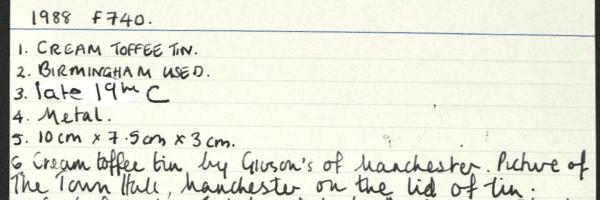 1988 F740.
1. CREAM TOFFEE TIN.
2. BIRMINGHAM USED.
3. late 19th C
4. Metal.
5. 10cm x 7.5cm x 3cm.
6 Cream toffee tin by of Manchester. Picture of
The Town Hall, Manchester on the lid of tin.